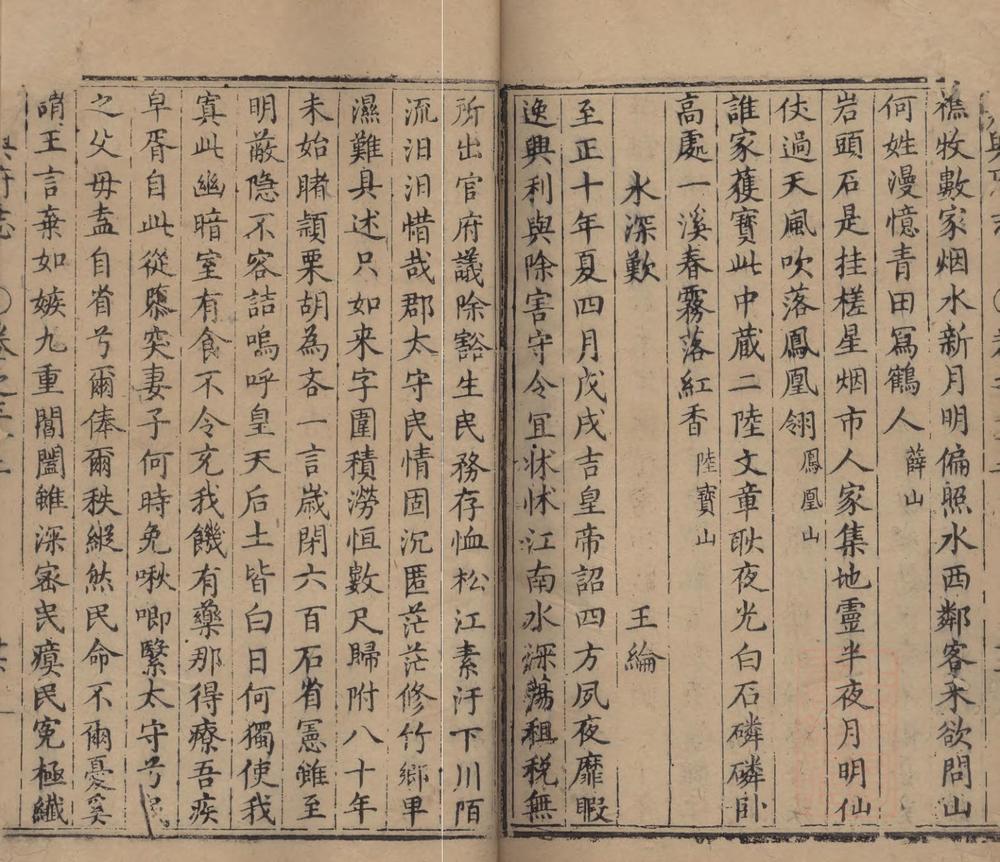 樵牧數家烟水新月明偏照水西鄰客来欲問山
何姓漫憶青田冩鶴人薛山
岩頭石是挂槎星烟市人家集地靈半夜月明仙
仗過天風吹落鳳凰翎鳳凰山
誰家獲寳此中蔵二陸文章耿夜光白石磷磷卧
高處一溪春霧落紅香陸寳山
水深歎 王綸
至正十年夏四月戊戌吉皇帝詔四方夙夜靡暇
逸興利與除害守令冝怵怵江南水深蕩租稅無
所出官府議除豁生民務存恤松江素汙下川陌
流汨汨惜哉郡太守民情固沉匿茫茫修竹鄉卑
濕難具述只如来字圍積澇恒數尺歸附八十年
未始睹穎栗胡為吝一言嵗閉六百石省憲雖至
明蔽隐不容詰嗚呼皇天后土皆白日何獨使我
寘此幽暗室有食不令充我饑有藥那得療吾疾
皁胥自此從隳突妻子何時免啾唧繄太守兮
之父毋盍自省兮爾俸爾秩縱然民命不爾憂奚
謭王言棄如嫉九重閶闔雖深宻民瘼民寃極纎